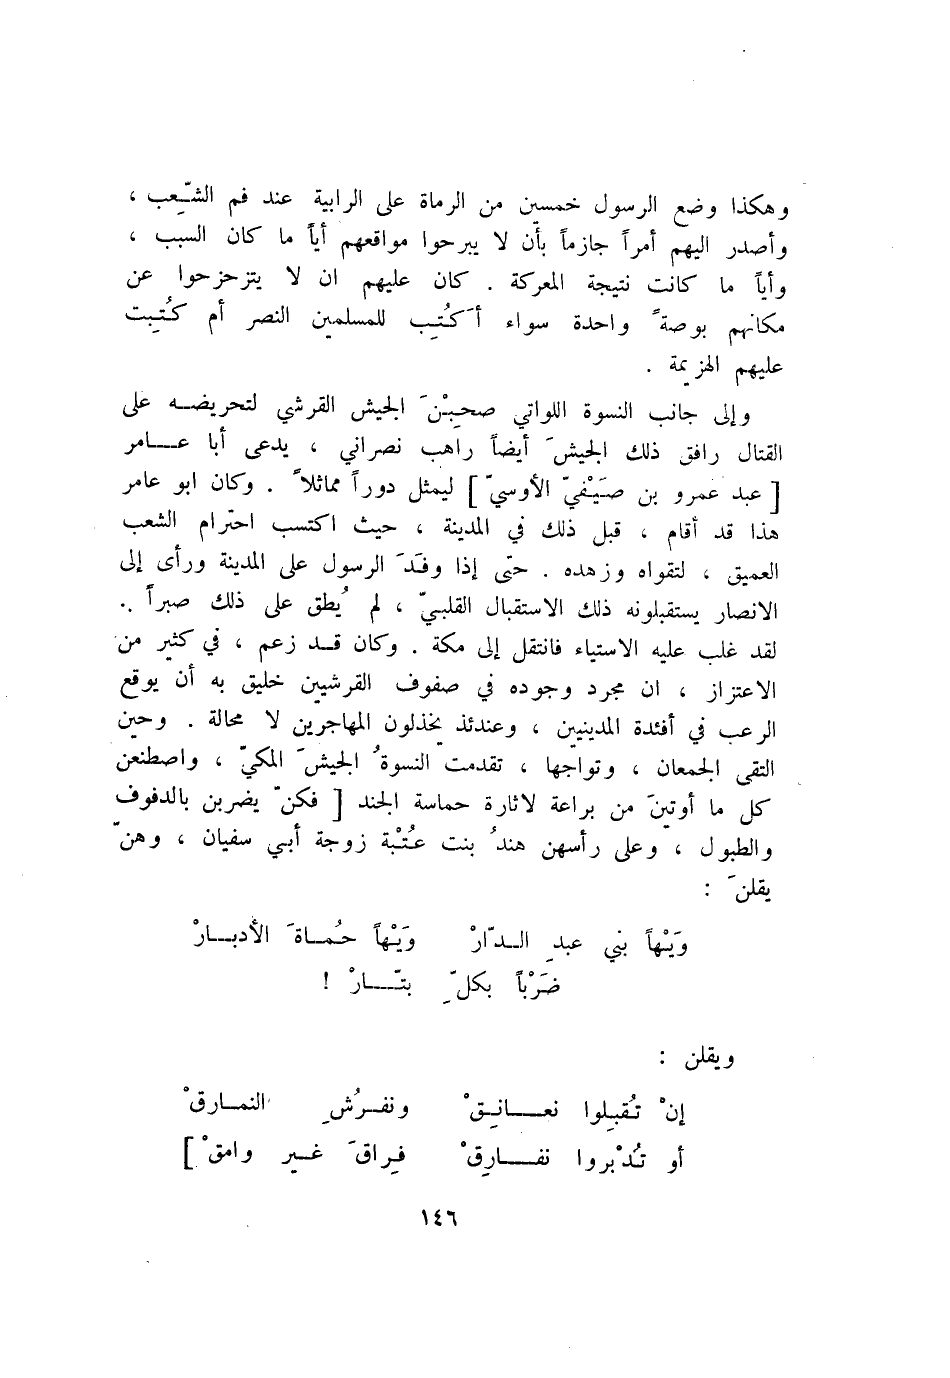 وهكذا وضع الرسول خمسين من الرماة على الرابية عند فم الشّعب ،
وأصدر اليهم أمراً جازماً بأن لا يبرحوا مواقعهم أياً ما كان السبب ،
وأياً ما كانت نتيجة المعركة . كان عليهم ان لا يتزحزحوا عن
مكانهم بوصةً واحدة سواء أكُتِب للمسلمين النصر أم كُتِبت
عليهم الهزيمة .
وإلى جانب النسوة اللواتي صحبْنَ الجيش القرشي لتحريضه على
القتال رافق ذلك الجيشَ أيضاً راهب نصراني ، يدعى أبا عامر
[ عبد عمرو بن صَيْفيّ الأوسيّ ] ليمثل دوراً مماثلاً . وكان ابو عامر
هذا قد أقام ، قبل ذلك في المدينة ، حيث اكتسب احترام الشعب
العميق ، لتقواه وزهده . حتى إذا وفَدَ الرسول على المدينة ورأى إلى
الانصار يستقبلونه ذلك الاستقبال القلبيّ ، لم يُطق على ذلك صبراً ..
لقد غلب عليه الاستياء فانتقل إلى مكة . وكان قد زعم ، في كثير من
الاعتزاز ، ان مجرد وجوده في صفوف القرشيين خليق به أن يوقع
الرعب في أفئدة المدينيين ، وعندئذ يخذلون المهاجرين لا محالة . وحين
التقى الجمعان ، وتواجها ، تقدمت النسوةُ الجيشَ المكيّ ، واصطنعن
كل ما أوتينَ من براعة لاثارة حماسة الجند [ فكنّ يضربن بالدفوف
والطبول ، وعلى رأسهن هندُ بنت عُتْبة زوجة أبي سفيان ، وهنّ
يقلنَ :
وَيْهاً بني عبدِ الدّارْ وَيْهاً حُماةَ الأدبارْ
ضَرْباً بكلِّ بتّارْ !
ويقلن :
إنْ تُقبِلوا نعانِقْ ونفرُشِ النمارقْ
أو تُدْبروا نفارِقْ فِراقَ غيرِ وامقْ ]
١٤٦